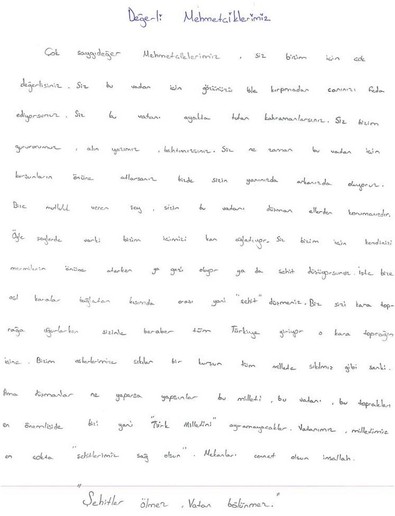 Değerli Mehmetciklerimiz
Çok saygıdeğer Mehmetciklerimiz, siz bizim için çok
değerlisiniz. Siz bu vatan için gözünüzü bile kırpmadan canınızı feda
ediyorsunuz. Siz bu vatanı ayakta tutan kahramanlarsınız. Siz bizim
gururumuz, alın yazımız, bahtımızsınız. Siz ne zaman bu vatan için
kurşunların önüne atlarsanız bizde sizin yanınızda arkanızda oluyoruz.
Bize mutluluk veren şey, sizin bu vatanı düşman ellerden korumanızdır.
Öyle seylerde varki bizim içimizi kan ağlatıyor. Siz bizim için kendinizi
önüne atarken ya gazi oluyor ya da şehit düşüyorsunuz. İşte bize
acı kısmında orası yani "şehit" düşmeniz. Biz sizi kara top-
rağa uğurlarken sizinle beraber tüm Türkiye giriyor o kara toprağın
içine. Bizim askerlerimize sıkılan bir kurşun tüm millete sıkılmış gibi sanki.
Ama düşmanlar ne yaparsa yapsınlar bu milleti, bu vatanı, bu toprakları
en önemliside bizi yani "Türk Milletini" ayıramayacaklar. Vatanımız, milletimiz
en çokta "şehitlerimiz sağ olsun". Mekanları cennet olsun inşallah.
"Şehitler ölmez, Vatan bölünmez."